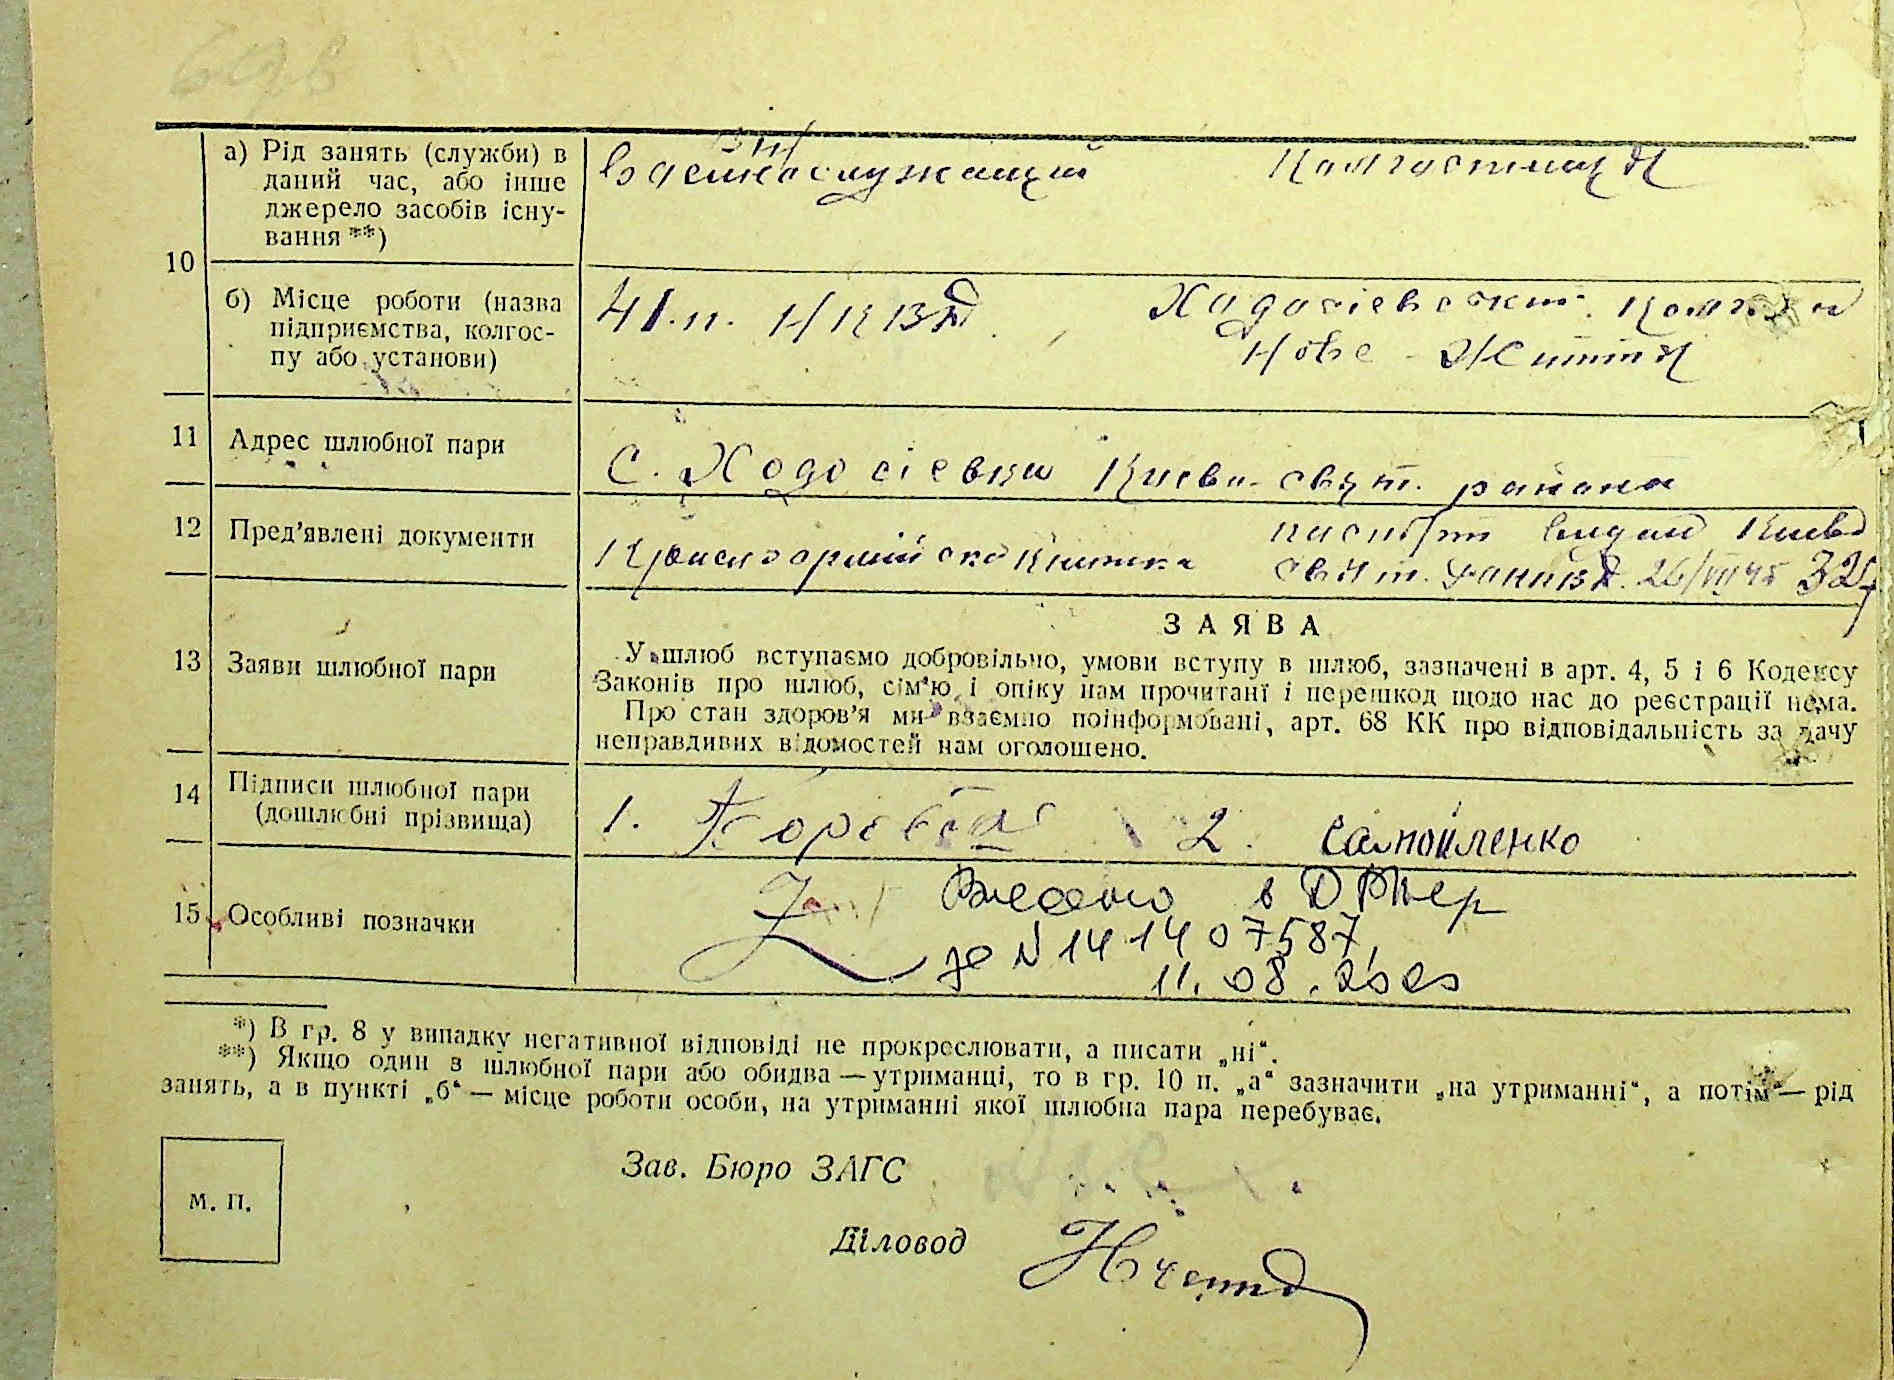 а) Рід занять (служби) в
даний час, або інше
джерело засобів існу-
вання **)
Военнослужащий
Колгоспниця
10
б) Місце роботи (назва
підприємства, колгос-
пу або установи)
41.п. НКВД
Ходосіевськ. Колгосп
Нове Життя
11 Адрес шлюбної пари
С. Ходосіевка Киево-свят. района
12 Пред'явлені документи
Красноармійска Книжка
паспорт видан Киево
свят. РОНКВД. 26/VII 45
13 Заяви шлюбної пари
ЗАЯВА
У шлюб вступаємо добровільно, умови вступу в шлюб, зазначені в арт. 4, 5 і 6 Кодексу
Законів про шлюб, сім'ю і опіку нам прочитані і перешкод щодо нас до реєстрації нема.
Про стан здоров'я ми взаємно поінформовані, арт. 68 КК про відповідальність за дачу
неправдивих відомостей нам оголошено.
14 Підписи шлюбної пари
(дошлюбні прізвища)
1.
2. Самойленко
15 Особливі позначки
в
за N 141407587,
11.08.
*) В гр. 8 у випадку негативної відповіді не прокреслювати, а писати „ні“.
**) Якщо один з шлюбної пари або обидва — утриманці, то в гр. 10 п. „а“ зазначити „на утриманні“, а потім — рід
занять, а в пункті „б“ — місце роботи особи, на утриманні якої шлюбна пара перебуває.
м. п.
Зав. Бюро ЗАГС
Діловод